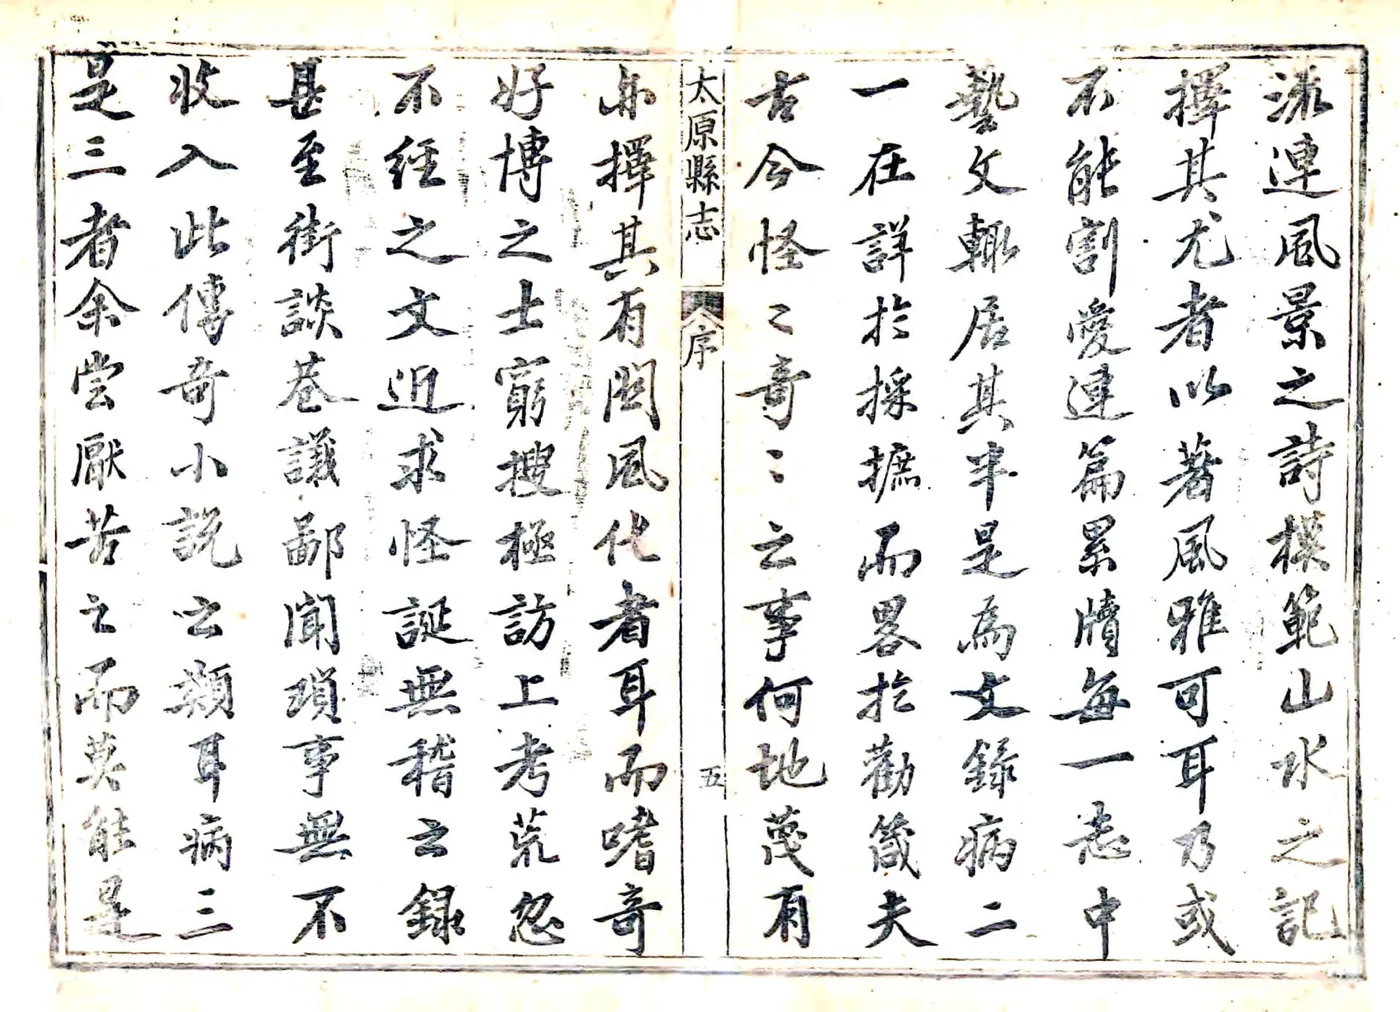 流連風景之詩模範山水之記
擇其尤者以著風雅可耳乃或
不能割愛連篇累牘每一志中
藝文輙居其半是為文錄病二
一在詳於採摭而畧於勸箴夫
古今怪〻奇〻之事何地蔑有
太原縣志
序
五
亦擇其有関風化者耳而嗜奇
好博之士窮搜極訪上考荒忽
不經之文近求怪誕無稽之錄
甚至街談巷議鄙聞瑣事無不
收入此傳奇小説之類耳病三
是三者余嘗厭苦之而莫能是